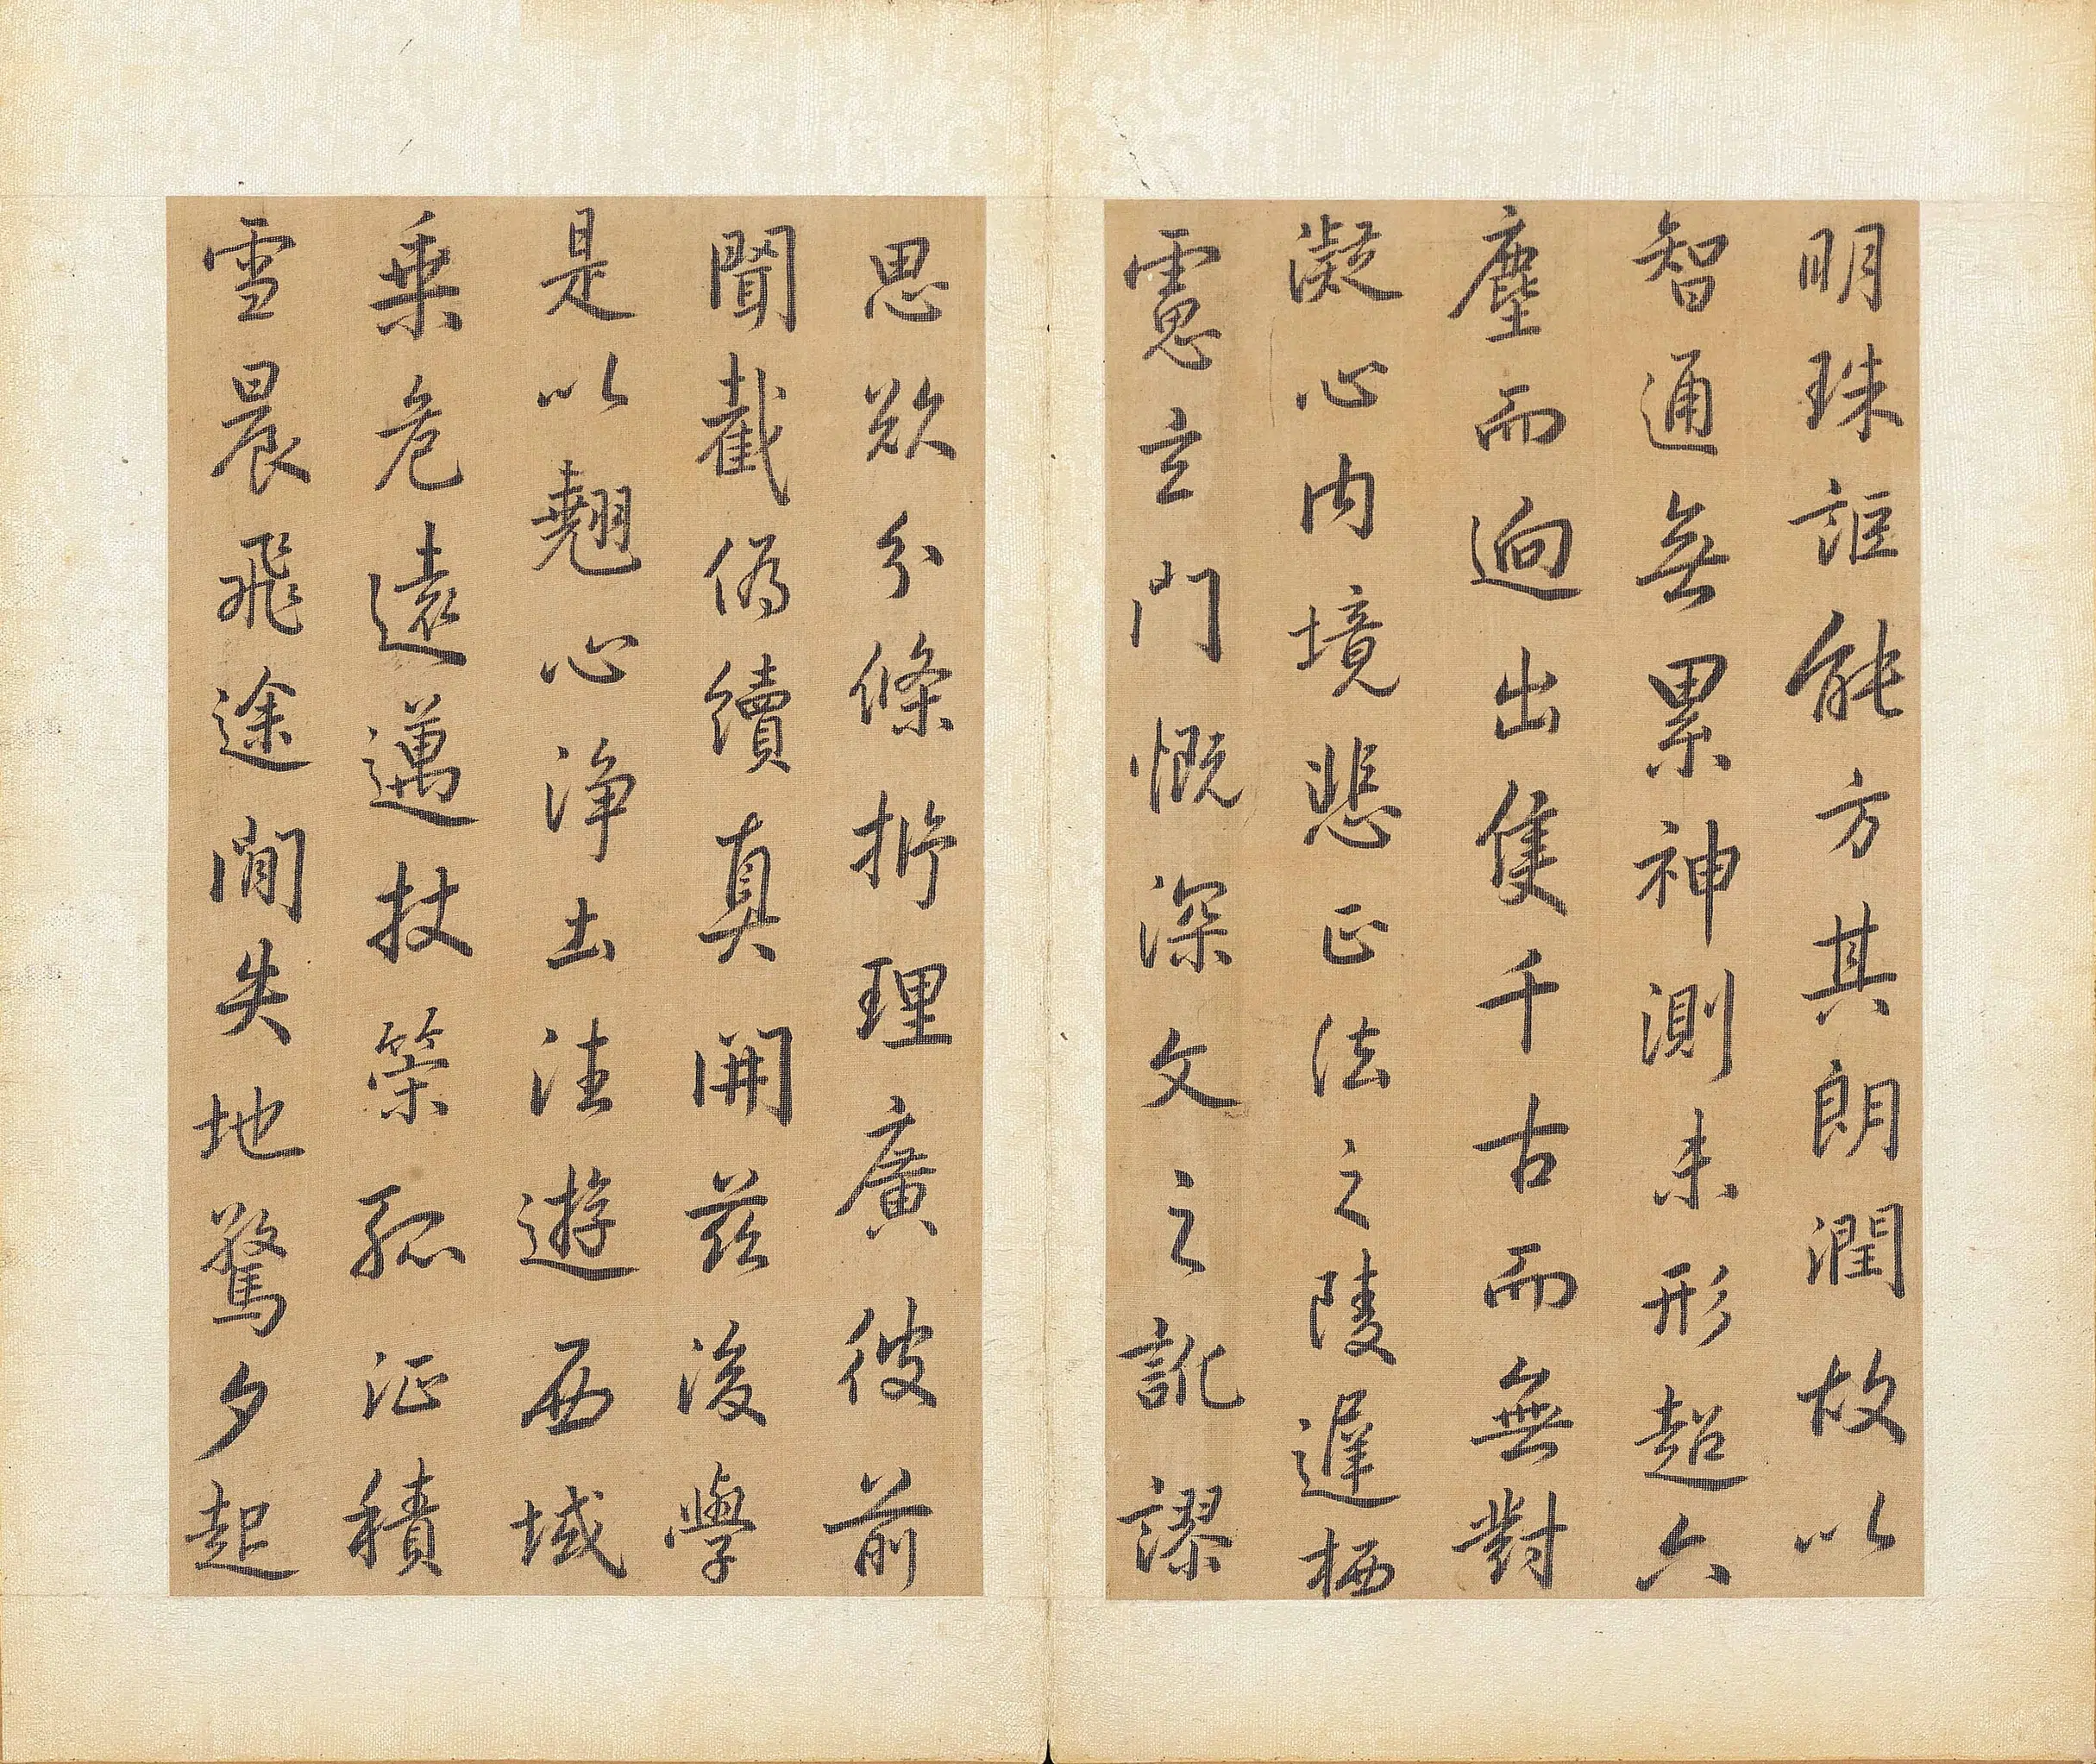 明珠詎能方其朗潤故以
智通無累神測未形超六
塵而迥出隻千古而無對
凝心內境悲正法之陵遲栖
慮玄門慨深文之訛謬
思欲分條析理廣彼前
聞截偽續真開茲後學
是以翹心淨土法遊西域
乗危遠邁杖策孤征積
雪晨飛途間失地驚夕起